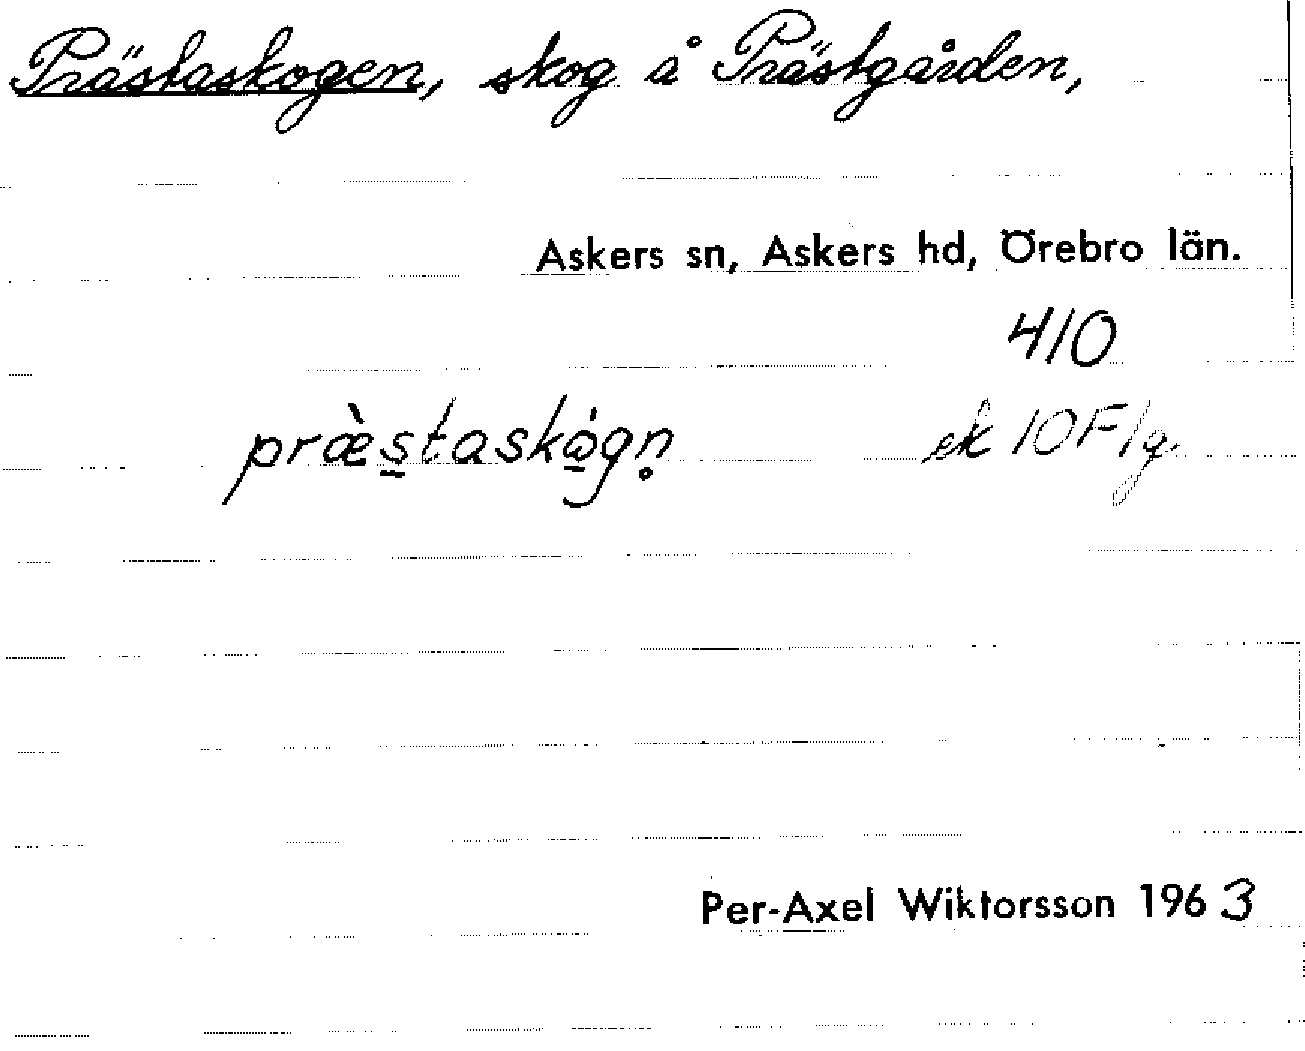 Prästaskogen, skog å Prästgården,
Askers sn, Askers hd, Örebro län.
410
præ̀s̠taskǻ̠gn̥ ek 10F/g
Per-Axel Wiktorsson 1963